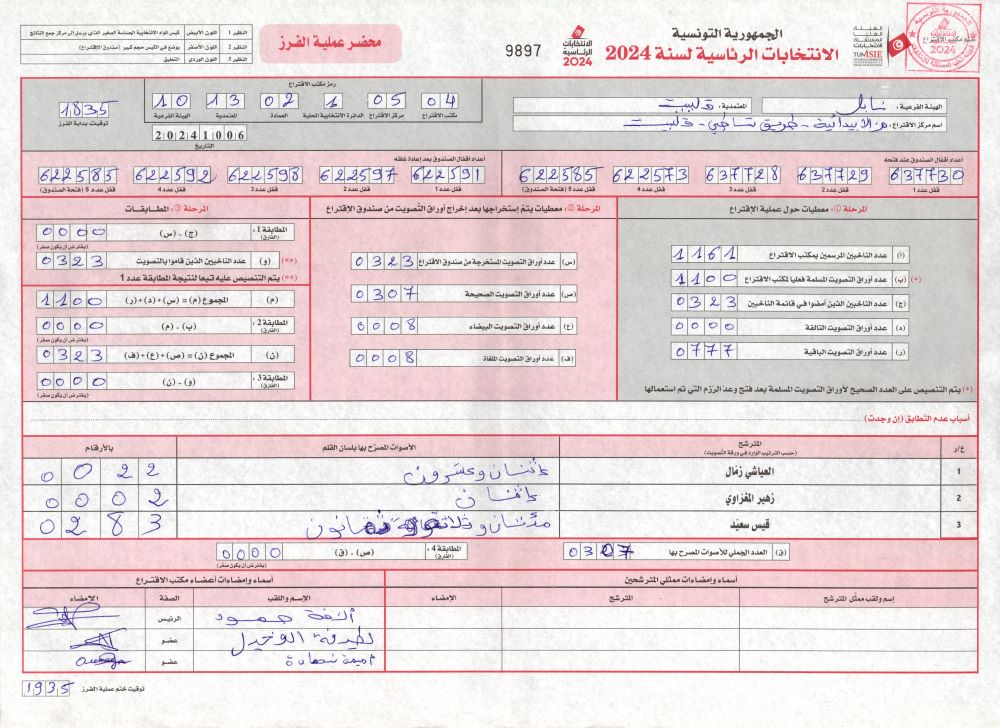 الجمهورية التونسية
الانتخابات الرئاسية لسنة 2024
الهيئة
العليا
المستقلة
للانتخابات
TUNISIE
الانتخابات
الرئاسية
2024
9897
محضر عملية الفرز
النظير 1 اللون الأبيض
النظير 2 اللون الأصفر يوضع في الكيس حجم كبير (صندوق الاقتراع)
النظير 3 اللون الوردي التعليق
الهيئة الفرعية : نابل المعتمدية: قليبية
اسم مركز الاقتراع :
رمز مكتب الاقتراع
04 05 1 02 13 10
مكتب الاقتراع مركز الاقتراع الدائرة الانتخابية المحلية العمادة المعتمدية الهيئة الفرعية
20241006
التاريخ
1835
توقيت بداية الفرز
أعداد أقفال الصندوق عند فتحه
637730 637729 637728 622573 622585
قفل عدد 1 قفل عدد 2 قفل عدد 3 قفل عدد 4 قفل عدد 5 (فتحة الصندوق)
أعداد أقفال الصندوق بعد إعادة غلقه
622591 622597 622598 622592 622585
قفل عدد 1 قفل عدد 2 قفل عدد 3 قفل عدد 4 قفل عدد 5 (فتحة الصندوق)
المرحلة ①: معطيات حول عملية الاقتراع
(أ) عدد الناخبين المرسمين بمكتب الاقتراع 1161
(*) (ب) عدد أوراق التصويت المسلمة فعليا لمكتب الاقتراع 1100
(ج) عدد الناخبين الذين أمضوا في قائمة الناخبين 0323
(د) عدد أوراق التصويت التالفة 0000
(ر) عدد أوراق التصويت الباقية 0777
(*) يتم التنصيص على العدد الصحيح لأوراق التصويت المسلمة بعد فتح وعد الرزم التي تم استعمالها
المرحلة ②: معطيات يتم إستخراجها بعد إخراج أوراق التصويت من صندوق الاقتراع
(س) عدد أوراق التصويت المستخرجة من صندوق الاقتراع 0323
(ص) عدد أوراق التصويت الصحيحة 0307
(ع) عدد أوراق التصويت البيضاء 0008
(ف) عدد أوراق التصويت الملغاة 0008
المرحلة ③: المطابقات
المطابقة 1: (الفارق) (ج) - (س) 0000
(يفترض أن يكون صفر)
(**) (و) عدد الناخبين الذين قاموا بالتصويت 0323
(**) يتم التنصيص عليه تبعا لنتيجة المطابقة عدد 1
(م) المجموع (م) = (س)+(د)+(ر) 1100
المطابقة 2: (الفارق) (ب) - (م) 0000
(يفترض أن يكون صفر)
(ن) المجموع (ن) = (ص)+(ع)+(ف) 0323
المطابقة 3: (الفارق) (و) - (ن) 0000
(يفترض أن يكون صفر)
أسباب عدم التطابق (إن وجدت)
ع/د المترشح (حسب الترتيب الوارد في ورقة التصويت) الأصوات المصرّح بها بلسان القلم بالأرقام
1 العياشي زمّال إثنان وعشرون 0022
2 زهير المغزاوي إثنان 0002
3 قيس سعيّد 0283
(ق) العدد الجملي للأصوات المصرح بها 0307 المطابقة 4: (الفارق) (ص) - (ق) 0000
(يفترض أن يكون صفر)
أسماء وإمضاءات ممثلي المترشحين
إسم ولقب ممثل المترشح المترشح الإمضاء
أسماء وإمضاءات أعضاء مكتب الاقتراع
الإسم واللقب الصفة الإمضاء
ألفة حمود الرئيس
لطيفة عضو
أميمة شحادة عضو
توقيت ختم عملية الفرز 1935